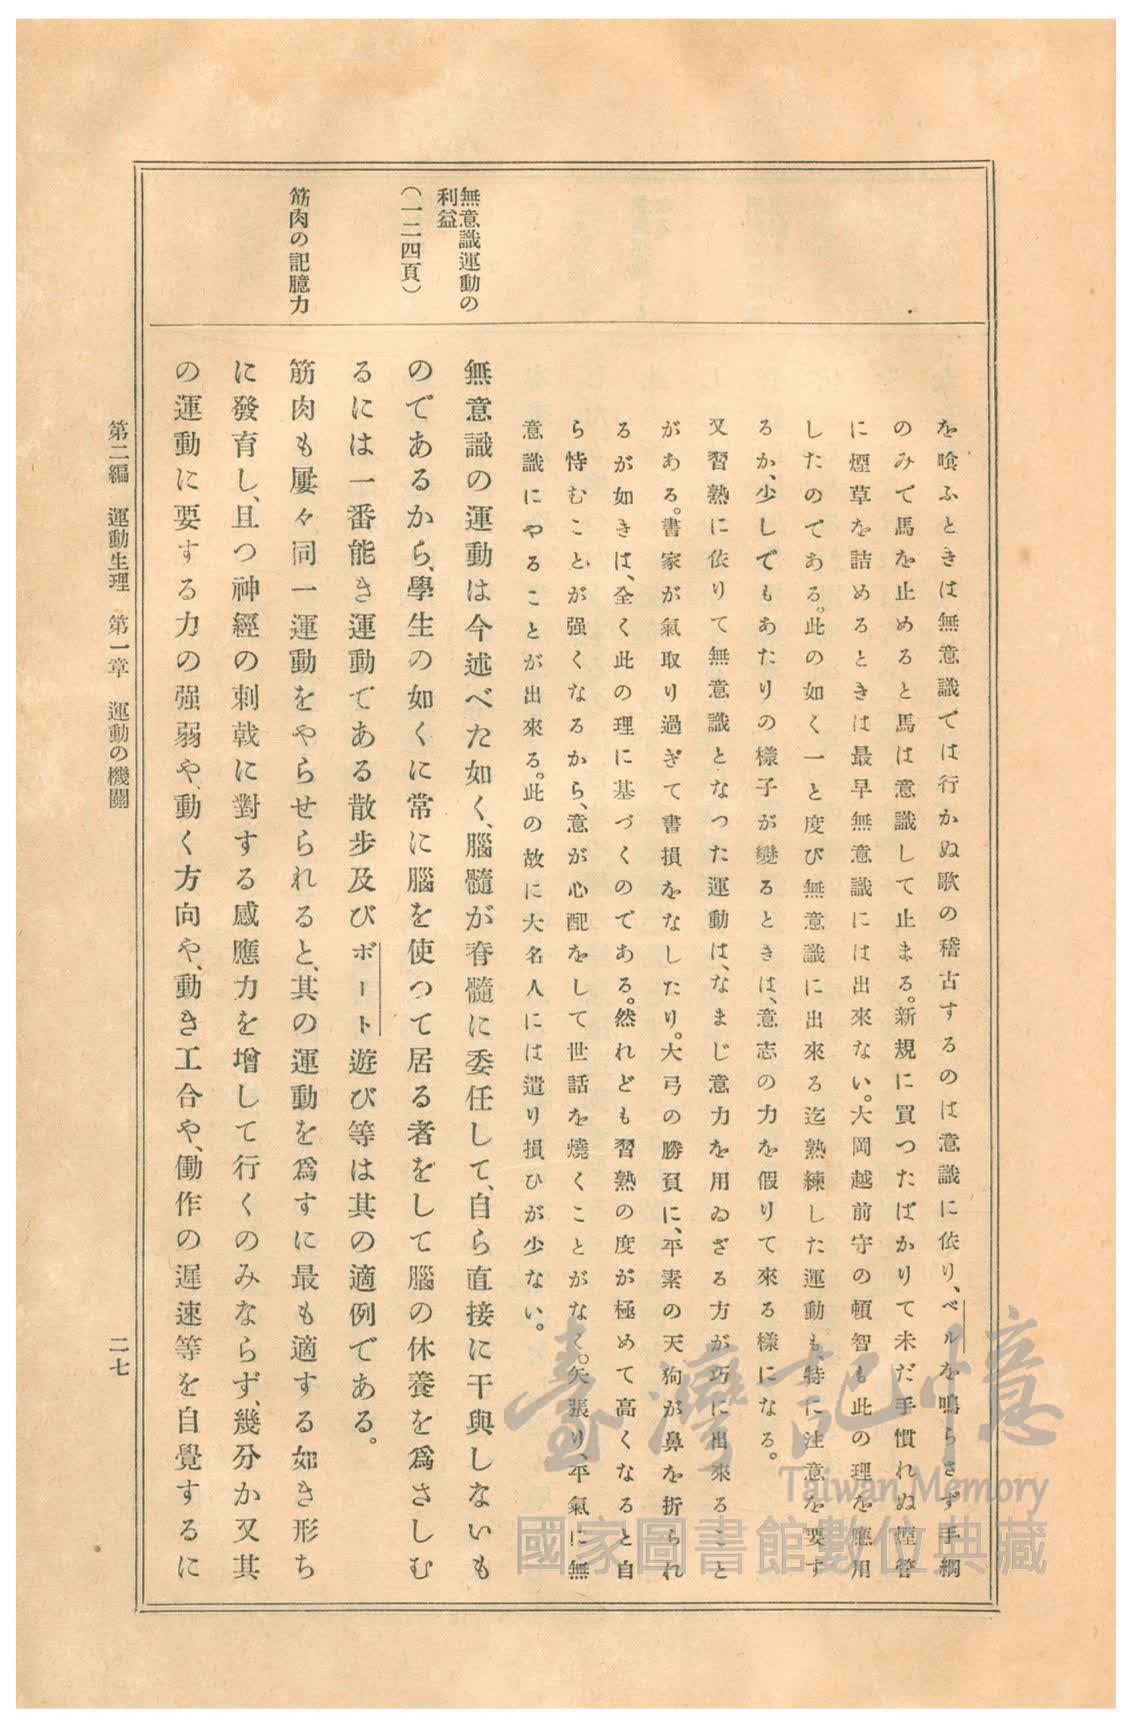 を喰ふときは無意識では行かぬ歌の稽古するのは意識に依り、ベルを鳴らさず手綱
のみで馬を止めると馬は意識して止まる。新規に買つたばかりて未だ手慣れぬ煙管
に煙草を詰めるときは最早無意識には出來ない。大岡越前守の頓智も此の理を應用
したのである。此の如く一と度び無意識に出來る迄熟練した運動も、特に注意を要す
るか、少しでもあたりの樣子が變るときは、意志の力を假りて來る樣になる。
又習熟に依りて無意識となつた運動は、なまじ意力を用ゐざる方が巧に出來ること
がある。書家が氣取り過ぎて書損をなしたり。大弓の勝負に、平素の天狗が鼻を折られ
るが如きは、全く此の理に基づくのである。然れども習熟の度が極めて高くなると自
ら恃むことが强くなるから、意が心配をして世話を燒くことがなく。矢張り、平氣に無
意識にやることが出來る。此の故に大名人には遣り損ひが少ない。
無意識運動の
利益
(一二四頁)
無意識の運動は今述べた如く、腦髓が脊髓に委任して、自ら直接に干與しないも
のであるから、學生の如くに常に腦を使つて居る者をして腦の休養を爲さしむ
るには一番能き運動である散步及びボート遊び等は其の適例である。
筋肉の記臆力
筋肉も屢々同一運動をやらせられると、其の運動を爲すに最も適する如き形ち
に發育し、且つ神經の刺戟に對する感應力を增して行くのみならず、幾分か又其
の運動に要する力の强弱や、動く方向や、動き工合や、働作の遲速等を自覺するに
第二編 運動生理 第一章 運動の機關
二七
臺灣記憶
Taiwan Memory
國家圖書館數位典藏